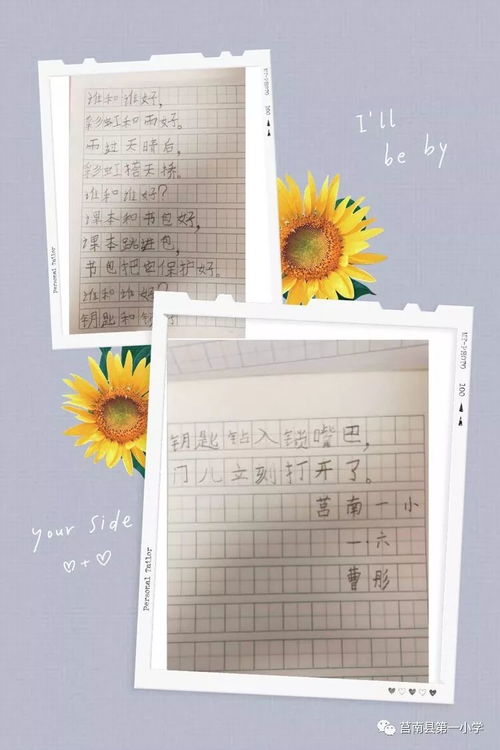 谁和谁好，
彩虹和雨好。
雨过天晴后，
彩虹搭天桥。
谁和谁好？
课本和书包好，
课本跳进包，
书包把它保护好。
谁和谁好？
钥匙和锁好
I'll
be by
Personal Tailor
100
钥匙钻入锁嘴巴，
门儿立刻打开了。
莒南一小
一·六
曹彤
your side
Personal Tailor
100
莒南县第一小学